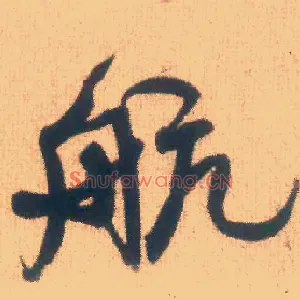 航
Shufawang.CN